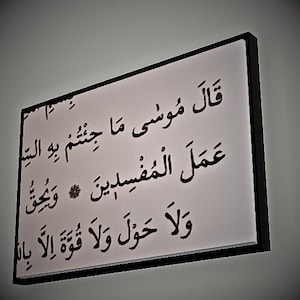 قَالَ مُوسٰى مَا جِئْتُمْ بِهِ السّ
عَمَلَ الْمُفْسِدِينَ ۞ وَيُحِقُّ
وَلَا حَوْلَ وَلَا قُوَّةَ اِلَّا بِال